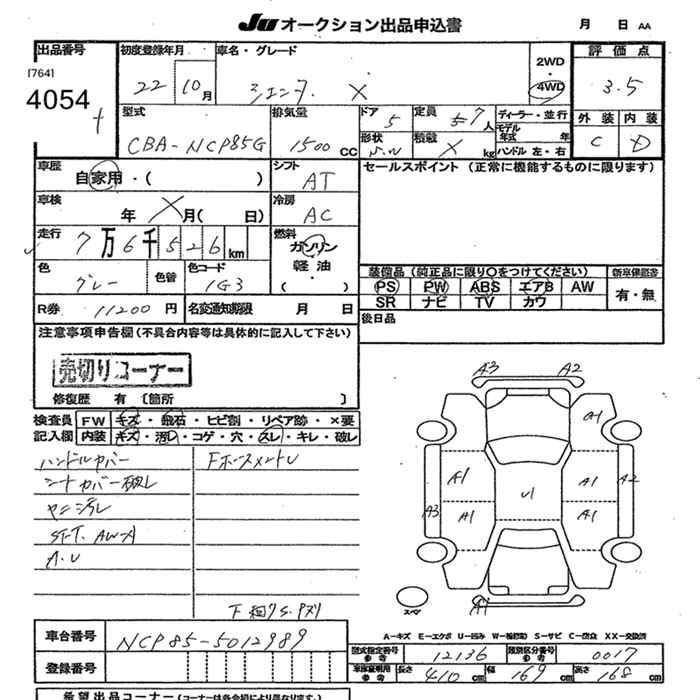 JU オークション出品申込書
月 日 AA
出品番号
[764]
4054
初度登録年月
22 10月
車名・グレード
シエンタ X
2WD
・
4WD
評価点
3.5
外装 内装
C D
型式
CBA-NCP85G
排気量
1500 CC
ドア
5
定員
7人
ディーラー・並行
モデル年式 年
形状
積載
X kg
ハンドル 左・右
車歴
自家用・( )
シフト
AT
セールスポイント (正常に機能するものに限ります)
車検
年 X 月( 日)
冷房
AC
走行
7万6千526km
燃料
ガソリン
軽油
・
( )
色
グレー
色替
色コード
1G3
装備品(純正品に限り○をつけてください)
新車保証書
PS PW ABS エアB AW
SR ナビ TV カワ
有・無
R券 11200 円
名変通知期限 月 日
後日品
注意事項申告欄(不具合内容等は具体的に記入して下さい)
売切りコーナー
修復歴 有 [箇所 ]
検査員
記入欄
FW キズ・飛石・ヒビ割・リペア跡・×要
内装 キズ・汚レ・コゲ・穴・スレ・キレ・破レ
ハンドルカバー
シートカバー破レ
ヤニ汚レ
A.U
A3 A2
A1
A1 A1 A2
U1
A3 A1 A1
スペア
A1
A-キズ E-エクボ U-凹み W-補修跡 S-サビ C-腐食 XX-交換済
車台番号
NCP85-5012989
登録番号
型式指定番号
参考
12136
類別区分番号
参考
0017
車庫証明用
参考
長さ 410 cm
幅 169 cm
高さ 168 cm
希望出品コーナー